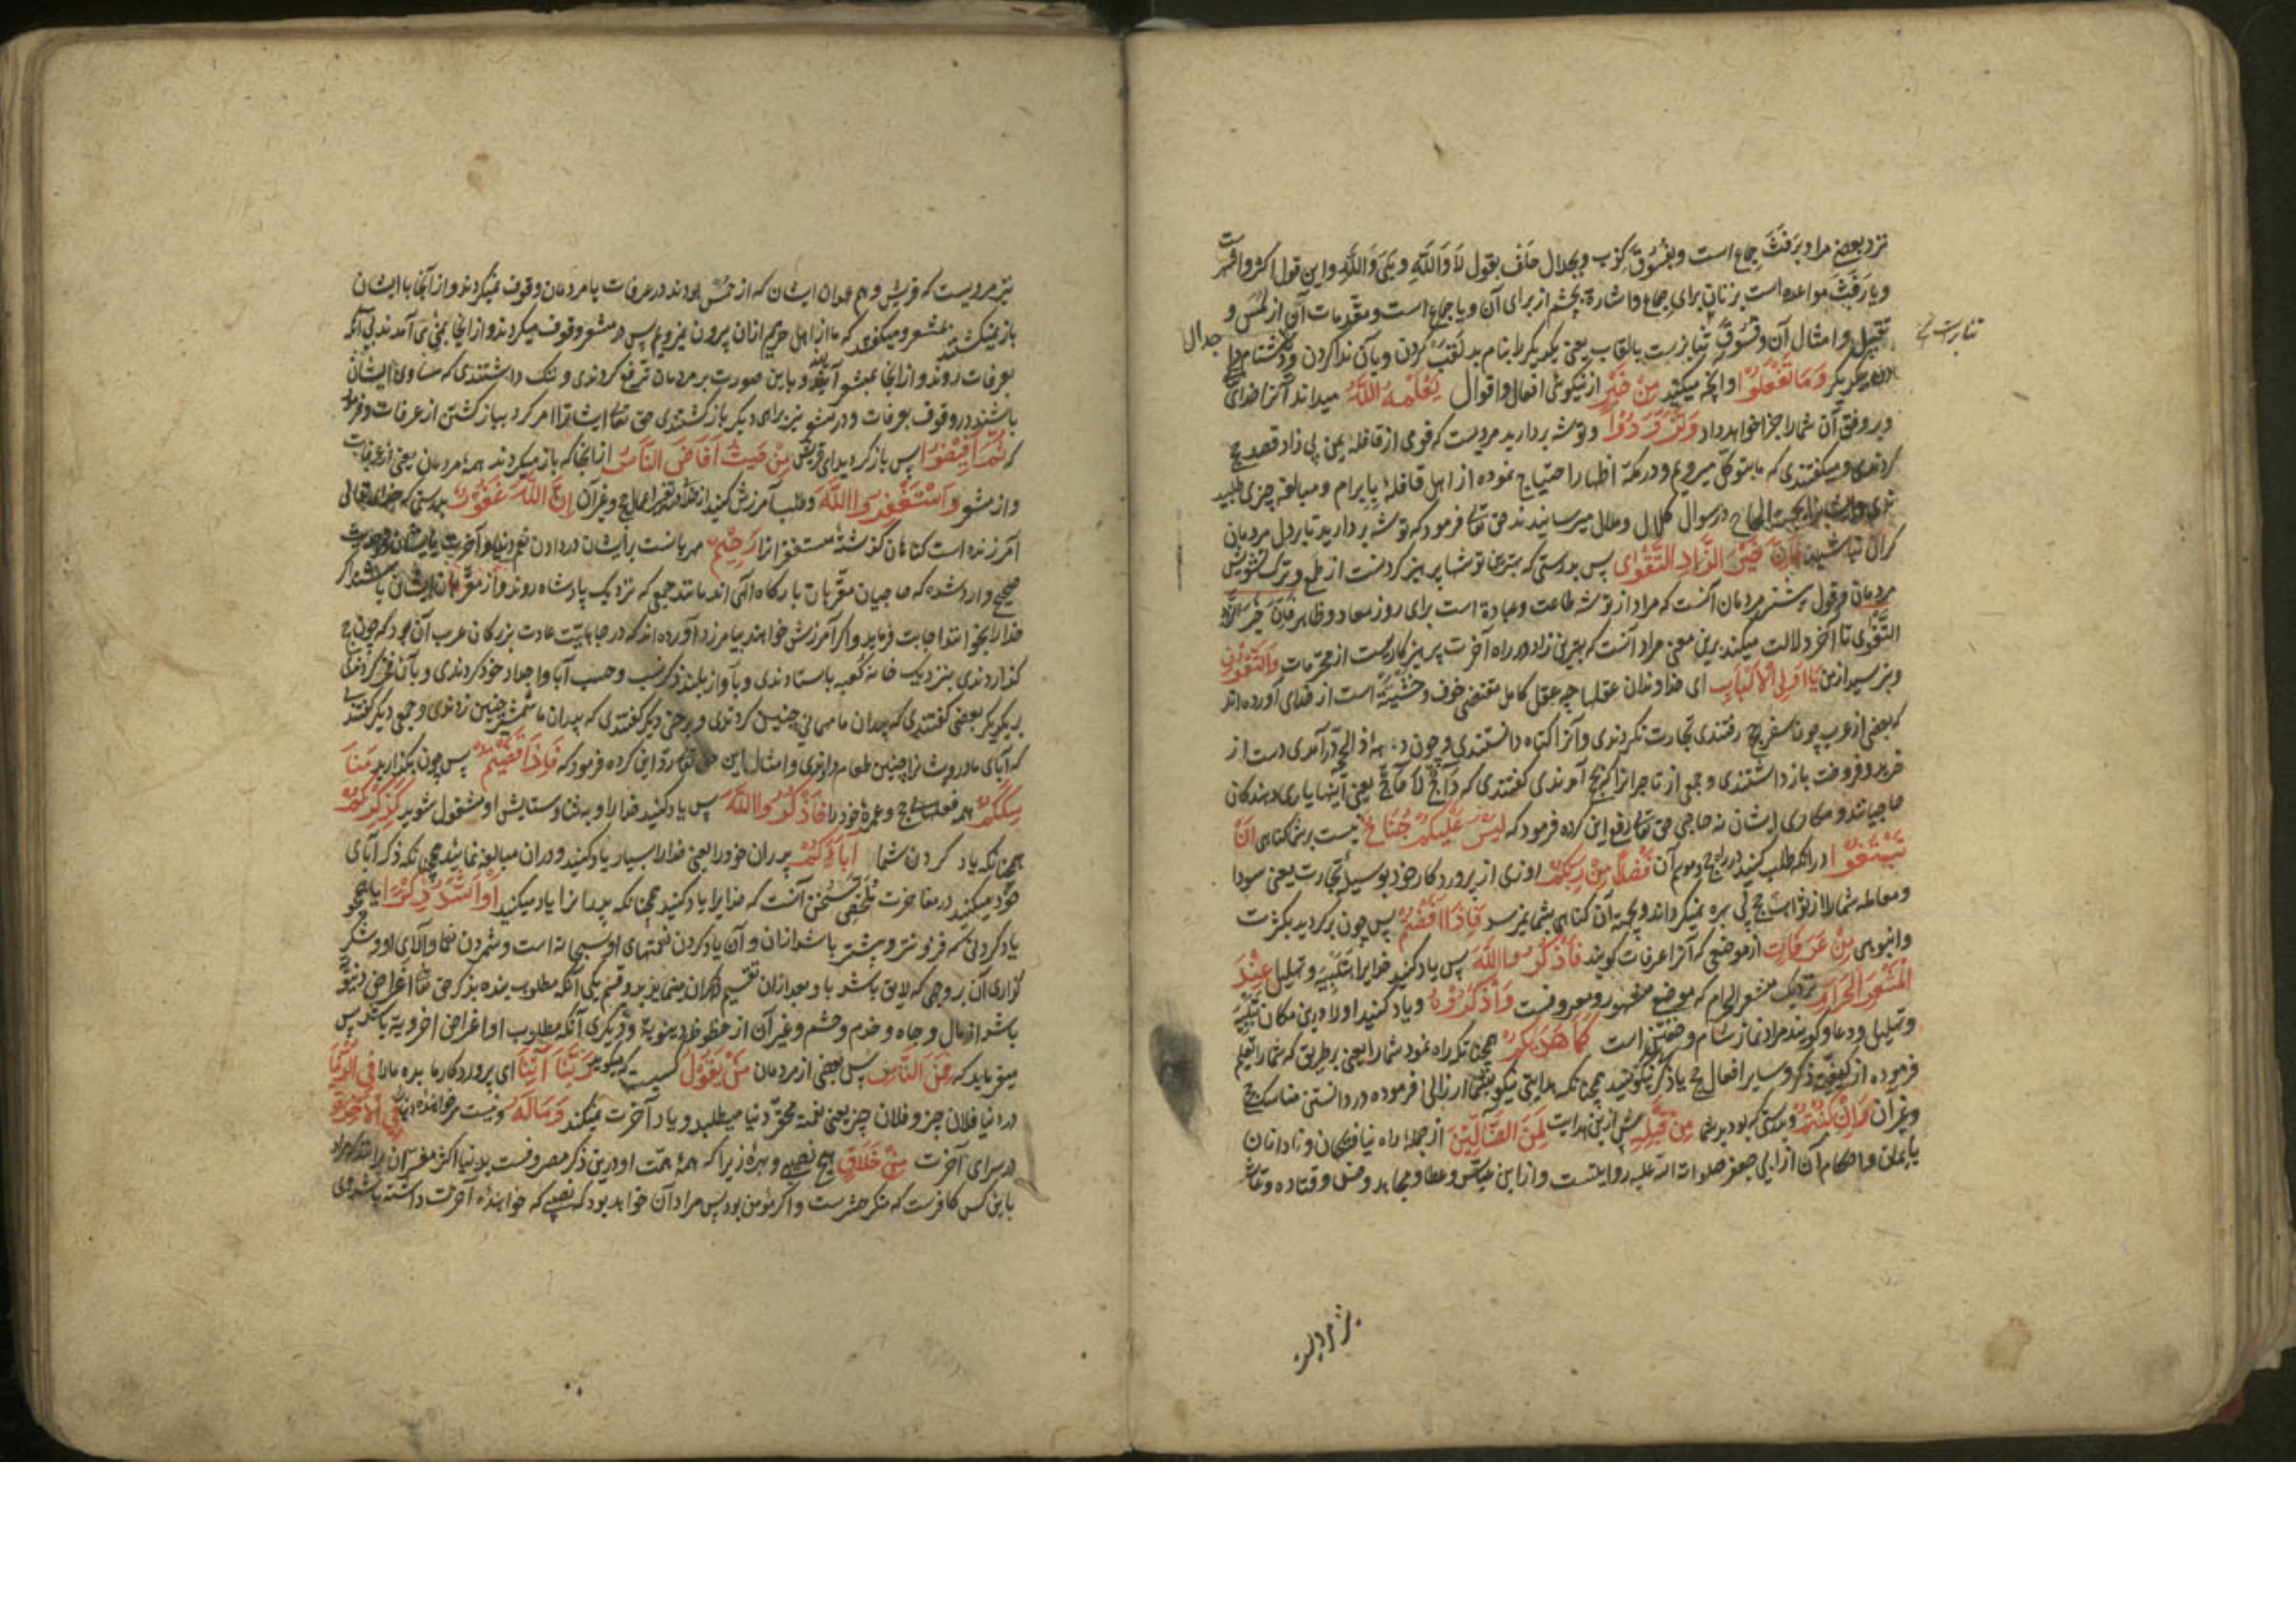 نزد بعضی مراد برَفَث جماع است و بفسوق کذب و بجدال حلف بقول لا والله و بلی والله و این قول اکثر و اشهرست
و یا رفث مواعده است بزنان برای جماع و اشارة بچشم از برای آن و یا جماع است و مقدمات آن از لمس و
تقبیل و امثال آن و فسوق تنابزست بالقاب یعنی یکدیگر را بنام بد لقب کردن و بآن ندا کردن و دشنام
جدال
یکدیگر وَمَا تَفْعَلُوا و آنچه میکنید مِنْ خَیْرٍ از نیکوئی افعال و اقوال یَعْلَمْهُ اللّٰهُ میداند آنرا خدای
و بر وفق آن شما را جزا خواهد داد وَتَزَوَّدُوا و توشه بردارید مرویست که قومی از قافلهٔ یمن بی زاد قصد حج
کردندی و میگفتندی که ما بتوکل میرویم و در مکه اظهار احتیاج نموده از اهل قافله بابرام و مبالغه چیزی طلبید
در سوال کلال و ملال میرسانیدند حق تعالی فرمود که توشه بردارید تا بر دل مردمان
گران نباشید فَإِنَّ خَیْرَ الزَّادِ التَّقْوٰی پس بدرستی که بهترین توشها پرهیز کردنست از طمع و ترک تشویش
مردمان و قول بیشتر مردمان آنست که مراد از توشه طاعت و عبادة است برای روز معاد و ظاهر فان خیر الزاد
التقوی تا آخر دلالت میکند برین معنی مراد آنست که بهترین زاد در راه آخرت پرهیزکاریست از محرمات وَاتَّقُونِ
و بترسید از من یَا أُولِی الْأَلْبَابِ ای خداوندان عقلها چه عقل کامل مقتضی خوف و خشیة است از خدای آورده اند
که بعضی از عرب چون بسفر حج رفتندی تجارت نکردندی و آنرا گناه دانستندی و چون دههٔ ذالحجه درآمدی دست از
خرید و فروخت باز داشتندی و جمعی از تاجرانرا که بحج آمدندی گفتندی که داج لا حاج یعنی اینها یاری دهندگان
حاجیانند و مکاری ایشان نه حاجی حق تعالی رفع این کرده فرمود که لَیْسَ عَلَیْکُمْ جُنَاحٌ نیست بر شما گناهی أَنْ
تَبْتَغُوا درآنکه طلب کنید در راه حج و موسم آن فَضْلًا مِنْ رَبِّکُمْ روزی از پروردگار خود بوسیلهٔ تجارت یعنی سودا
و معامله شما را از ثواب حج بی بهره نمیگرداند و بجهة آن گناهی بشما نمیرسد فَإِذَا أَفَضْتُمْ پس چون برگردید بکثرت
و انبوهی مِنْ عَرَفَاتٍ از موضعی که آنرا عرفات گویند فَاذْکُرُوا اللّٰهَ پس یاد کنید خدایرا بتلبیه و تهلیل عِنْدَ
الْمَشْعَرِ الْحَرَامِ نزدیک مشعر الحرام که موضع مشهور و معروفست وَاذْکُرُوهُ و یاد کنید او را درین مکان بتلبیه
و تهلیل و دعا و گویند مراد نماز شام و خفتن است کَمَا هَدٰیکُمْ همچنانکه راه نمود شما را یعنی بر طریق که شما را تعلیم
فرموده از کیفیت ذکر و سایر افعال حج یا ذکر نیکو کنید همچنانکه هدایتی نیکو بشما ارزانی فرموده در دانستن مناسک حج
و غیر آن وَإِنْ کُنْتُمْ و بدرستی که بودید شما مِنْ قَبْلِهِ پیش ازین هدایت لَمِنَ الضَّالِّینَ از جملهٔ راه نیافتگان و نادانان
بایمان و احکام آن از ابی جعفر صلوات الله علیه روایتست و از ابن عباس و عطا و مجاهد و حسن و قتاده و
نیز مرویست
نیز مرویست که قریش و هم عهدان ایشان که از حمس بودند در عرفات با مردمان وقوف نمیکردند و از آنجا با ایشان
باز نمیگشتند بمشعر و میگفتند که ما از اهل حرمیم ازان بیرون نمیرویم پس در مشعر وقوف میکردند و از آنجا بمنی می آمدند بی آنکه
بعرفات روند و از آنجا بمشعر آیند و باین صورت بر مردمان ترفع کردندی و ننگ داشتندی که مساوی ایشان
باشند در وقوف بعرفات و در مشعر نیز برای دیگر بازگشتندی حق تعالی ایشانرا امر کرد ببازگشتن از عرفات و فرمود
که ثُمَّ أَفِیضُوا پس بازگردید ای قریش مِنْ حَیْثُ أَفَاضَ النَّاسُ از آنجا که باز میگردند همهٔ مردمان یعنی از عرفات
و از مشعر وَاسْتَغْفِرُوا اللّٰهَ و طلب آمرزش کنید از خدا و غیر آن إِنَّ اللّٰهَ غَفُورٌ بدرستی که خدای تعالی
آمرزنده است گناهان گذشتهٔ مستغفرانرا رَحِیمٌ مهربانست بر ایشان در دادن نفع دنیا و آخرت
صحیح وارد شده که حاجیان مقربان بارگاه الهی اند مانند جمعی که نزدیک پادشاه روند و از مقربان ایشان باشند اگر
خدا را بخوانند اجابت فرماید و اگر آمرزش خواهند بیامرزد آورده اند که در جاهلیت عادت بزرگان عرب آن بود که چون حج
گذاردندی بنزدیک خانهٔ کعبه باستادندی و بآواز بلند ذکر نسب و حسب آبا و اجداد خود کردندی و بآن فخر کردندی
بر یکدیگر بعضی گفتندی که پدران ما مهمانی چنین کردندی و برخی دیگر گفتندی که پدران ما شمشیر چنین زدندی و جمعی دیگر گفتند
که آبای ما درویشانرا چنین طعام دادندی و امثال این حق تعالی رد این کرده فرمود که فَإِذَا قَضَیْتُمْ پس چون بگذارید مَنَا
سِکَکُمْ همه فعلهای حج و عمرهٔ خود را فَاذْکُرُوا اللّٰهَ پس یاد کنید خدا را و بثنا و ستایش او مشغول شوید کَذِکْرِکُمْ
همچنانکه یاد کردن شما آبَاءَکُمْ پدران خود را یعنی خدا را بسیار یاد کنید و دران مبالغه نمائید همچنانکه ذکر آبای
خود میکنید در مفاخرت تلخص سخن آنست که خدایرا یاد کنید همچنانکه پدرانرا یاد میکنید أَوْ أَشَدَّ ذِکْرًا یا همچو
یاد کردنی که فزونتر و بیشتر باشد ازان و آن یاد کردن نعمتهای او سبحانه است و شمردن نعما و آلای او و شکر
گزاری آن بر وجهی که لایق باشد باو بعد ازان تقسیم ذاکران مینماید بدو قسم یکی آنکه مطلوب بنده بذکر حق تعالی اغراض دنیو
باشد از مال و جاه و خدم و حشم و غیر آن از حظوظ دنیویه و دیگری آنکه مطلوب او اغراض اخرویه باشد پس
میفرماید که فَمِنَ النَّاسِ پس بعضی از مردمان مَنْ یَقُولُ کسیست که میگوید رَبَّنَا آتِنَا ای پروردگار ما بده ما را فِی الدُّنْیَا
در دنیا فلان چیز و فلان چیز یعنی نعمة محقر دنیا میطلبد و یاد آخرت نمیکند وَمَا لَهُ و نیست مر خوانندهٔ دنیا را فِی الْآخِرَةِ
در سرای آخرت مِنْ خَلَاقٍ هیچ نصیبی و بهرهٔ زیرا که همهٔ همت او درین ذکر مصروفست بدنیا اکثر مفسران برانند که مراد
باین کس کافرست که منکر حشرست و اگر مؤمن بود پس مراد آن خواهد بود که نصیبی که خوانندهٔ آخرت داشته باشد